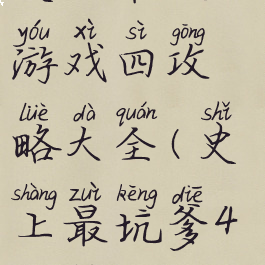 yóu xì sì gōng
游戏四攻
lüè dà quán shǐ
略大全(史
shàng zuì kēng diē
上最坑爹4